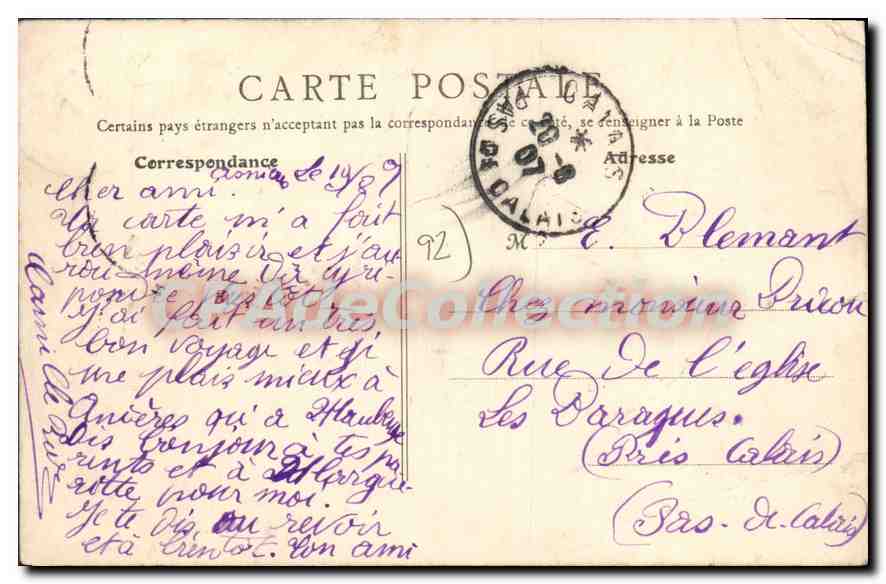 CARTE POSTALE
Certains pays étrangers n'acceptant pas la correspondance de ce côté, se renseigner à la Poste
Correspondance
Adresse
Asnières Le 19/8/7
Cher ami.
Ta carte m'a fait
bien plaisir et j'au
rai même dû y ré
pondre plus tôt
J'ai fait un très
bon voyage et j'
me plais mieux à
Asnières qu'à Maubeuge
Dis bonjour à tes pa
rents et à Margue
ritte pour moi.
Je te dis au revoir
et à bientôt. Ton ami
Camille
92)
M
E. Blemant
Chez monsieur Druon
Rue de l'église
Les Baraques.
(Près Calais)
(Pas-de-Calais)
CALAIS
PAS DE CALAIS
20-8
07
CPAdeCollection